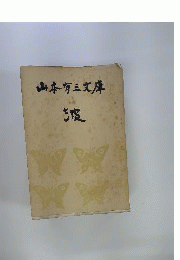 山本有三文庫
波